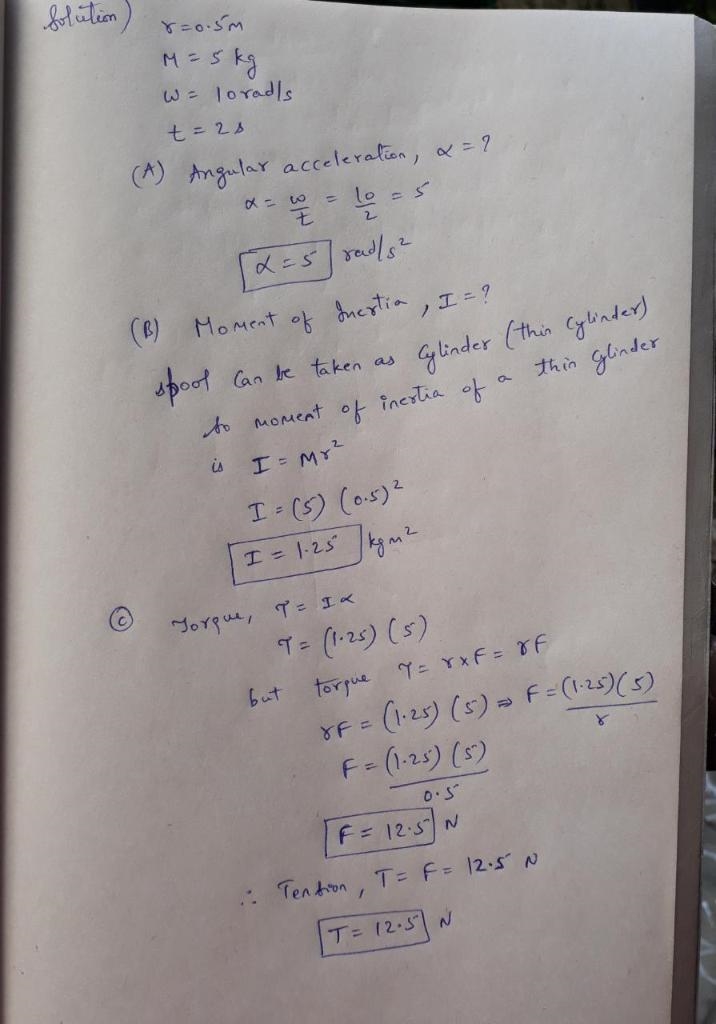 Solution)
r=0.5m
M = 5 kg
ω = 10rad/s
t = 2s
(A) Angular acceleration, α = ?
α = ω/t = 10/2 = 5
α = 5 rad/s²
(B) Moment of Inertia, I = ?
spool can be taken as cylinder (thin cylinder)
so moment of inertia of a thin cylinder
is I = Mr²
I = (5) (0.5)²
I = 1.25 kgm²
(C) Torque, τ = Iα
τ = (1.25) (5)
but torque τ = r×F = rF
rF = (1.25) (5) ⇒ F = (1.25)(5)/r
F = (1.25) (5)/0.5
F = 12.5 N
∴ Tension, T = F = 12.5 N
T = 12.5 N